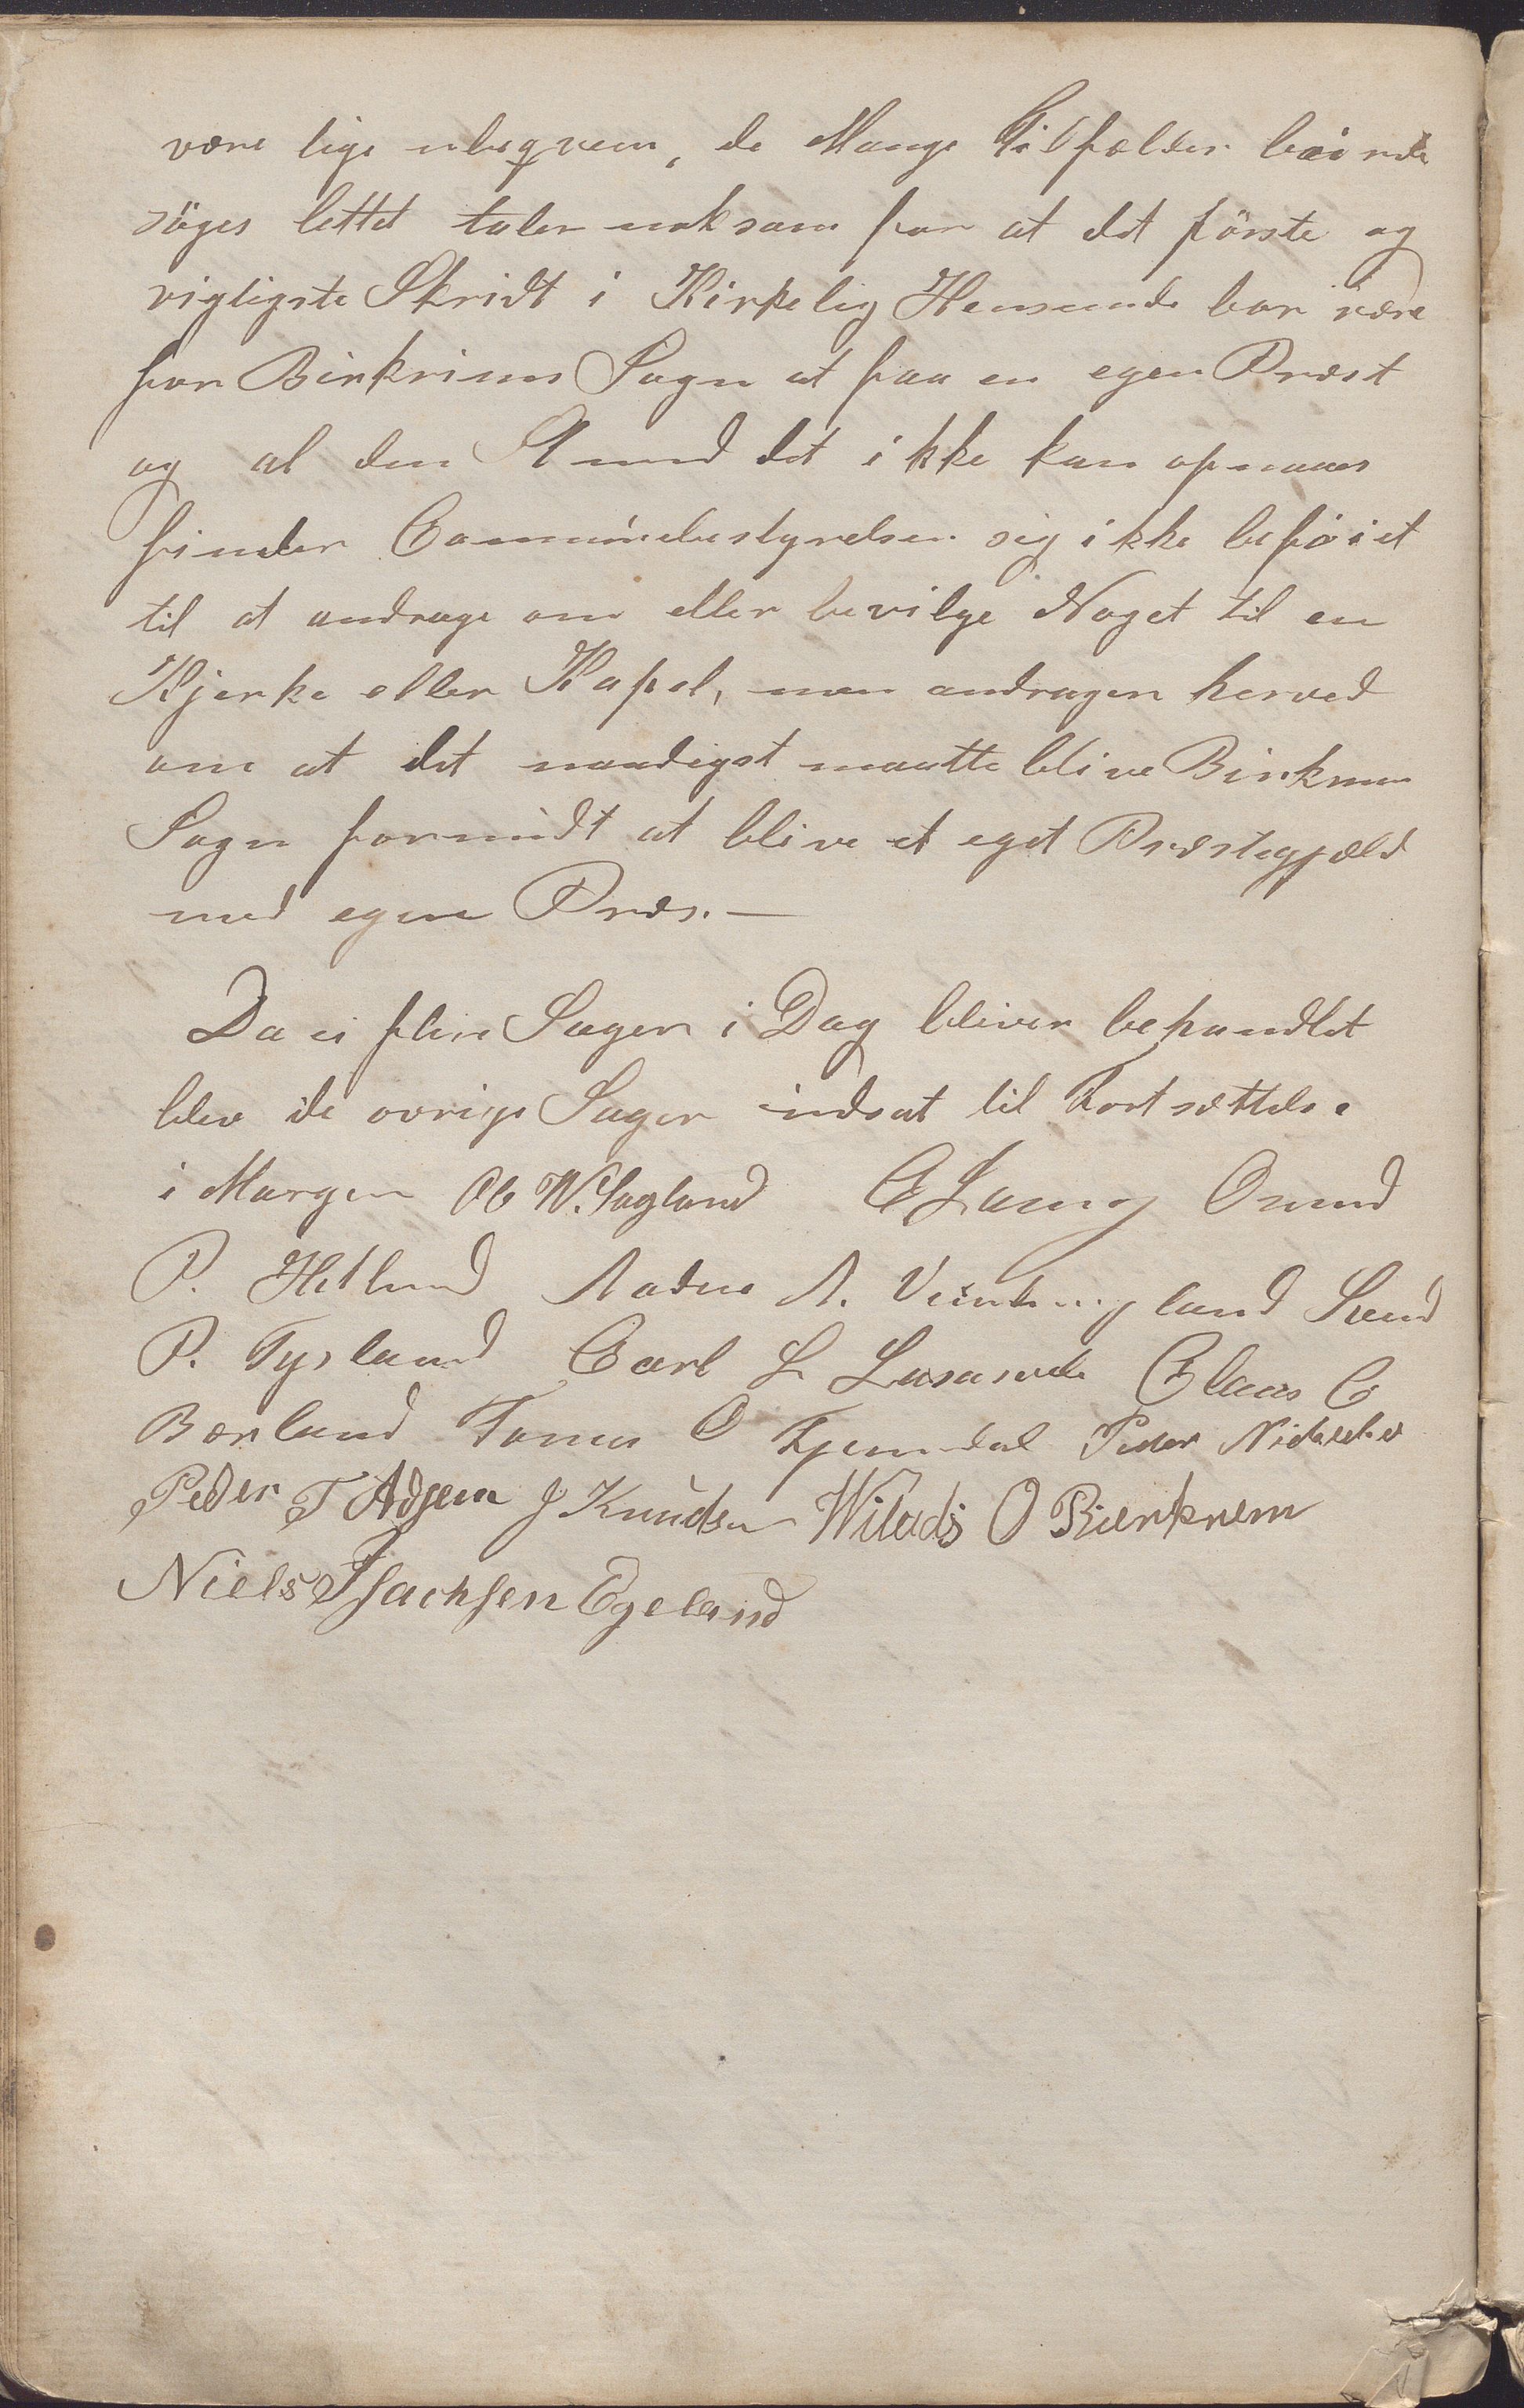 være lige ubeqvem, de Mange Tilfælder
söges lettet taler noksom for at det förste og
vigtigste Skridt i Kirkelig Henseende bør være
for Birkrims Sogn at faa en egen Præst
og al den Stund det ikke kan opnaaes
finder Communebestyrelsen sig ikke beføiet
til at andrage om eller bevilge Noget til en
Kjerke eller Kapel, men andrager herved
om at det naadigst maatte blive Birkrem
Sogn forundt at blive et eget Præstegjæld
med egen Præs. —
Da ei flere Sager i Dag bliver behandlet
blev de øvrige Sager udsat til Fortsættelse
i Morgen Ob W. Sagland Omund
P. Hetland Aadne A. Sven
P. Tysland Carl L Claus C
Børland Tomas O Peder
Peder T Adsem J Knudsen Wilads O Bierkrem
Niels Isachsen Egeland